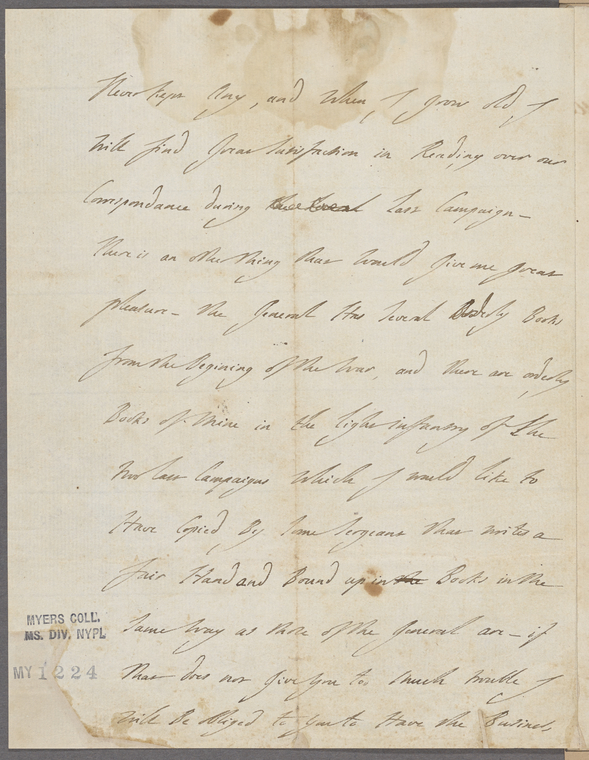 Never kept Any, and when I grow old, I
will find great Satisfaction in Reading over our
Correspondance during last Campaign —
there is an other thing that would give me great
pleasure — the general Has Several Orderly Books
from the Begining of the War, and there are orderly
Books of Mine in the light infantry of the
two last Campaigns which I would like to
Have Copied By Some Sergeant that writes a
fair Hand and Bound up in the Books in the
Same way as those of the general are — if
that does not give you too Much trouble I
will Be obliged to you to Have the Business
MYERS COLL.
MS. DIV. NYPL
MY 1224